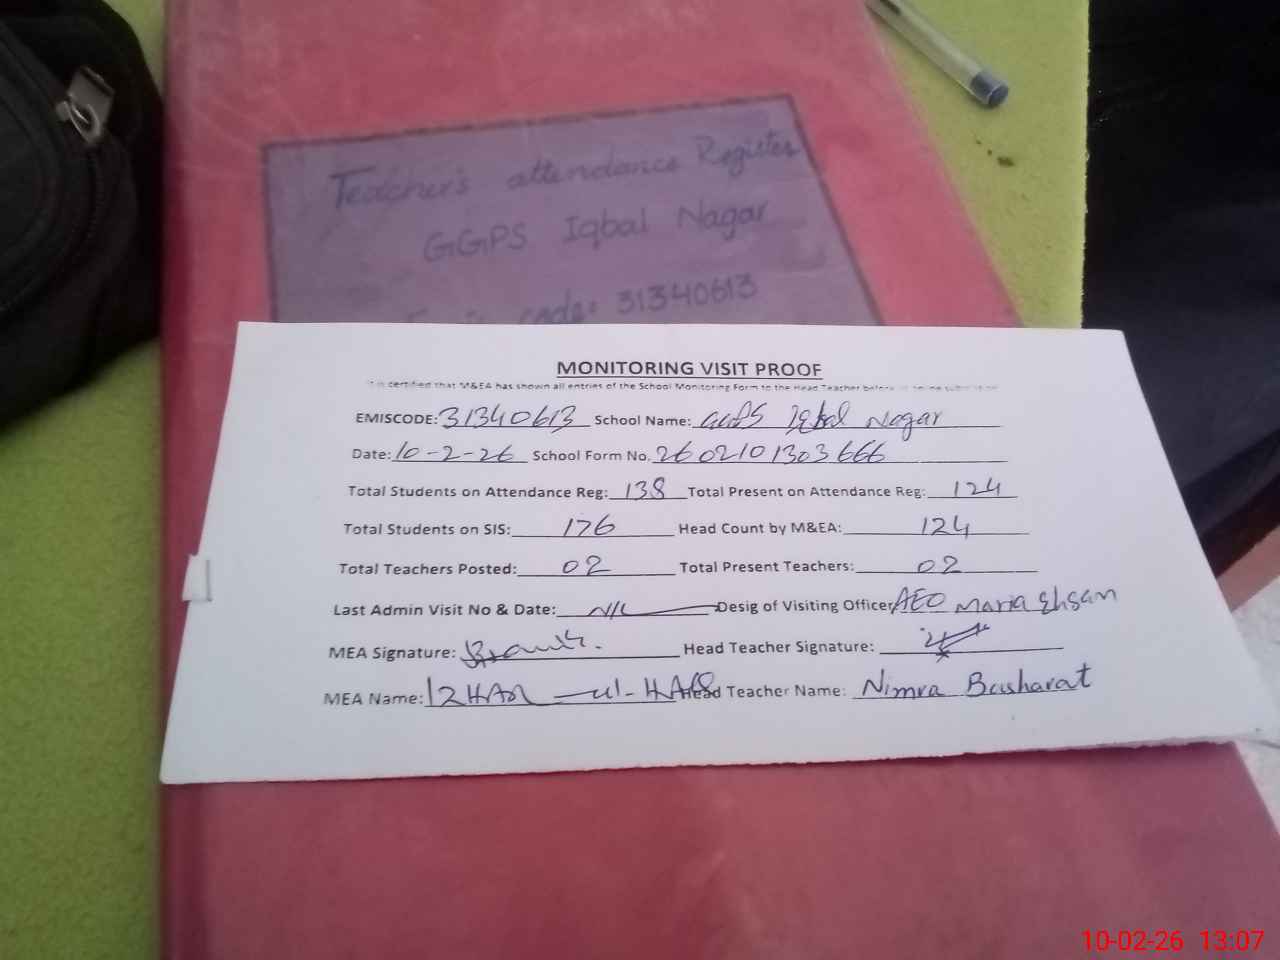 Teacher's attendance Register
GGPS Iqbal Nagar
code: 31340613
MONITORING VISIT PROOF
It is certified that M&EA has shown all entries of the School Monitoring Form to the Head Teacher before
EMISCODE: 31340613 School Name: GGPS Iqbal Nagar
Date: 10-2-26 School Form No. 2602101303666
Total Students on Attendance Reg: 138 Total Present on Attendance Reg: 124
Total Students on SIS: 176 Head Count by M&EA: 124
Total Teachers Posted: 02 Total Present Teachers: 02
Last Admin Visit No & Date: Desig of Visiting Officer AEO Maria Ehsan
MEA Signature: Head Teacher Signature:
MEA Name: IZHAR-ul-HAQ Head Teacher Name: Nimra Basharat
10-02-26 13:07